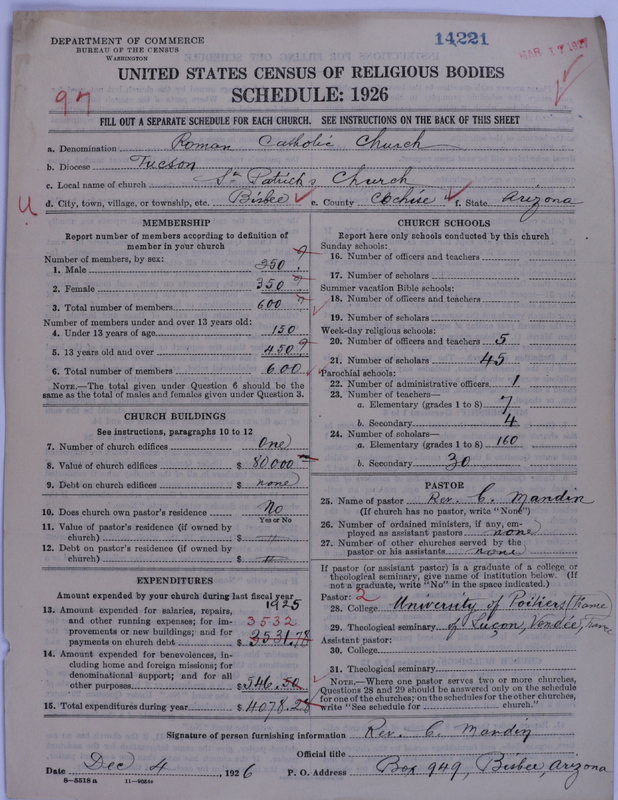 DEPARTMENT OF COMMERCE
BUREAU OF THE CENSUS
WASHINGTON
14221
MAR 17 1927
UNITED STATES CENSUS OF RELIGIOUS BODIES
SCHEDULE: 1926
97
FILL OUT A SEPARATE SCHEDULE FOR EACH CHURCH. SEE INSTRUCTIONS ON THE BACK OF THIS SHEET
a. Denomination Roman Catholic Church
b. Diocese Tucson
c. Local name of church St. Patrick's Church
d. City, town, village, or township, etc. Bisbee e. County Cochise f. State Arizona
MEMBERSHIP
Report number of members according to definition of
member in your church
Number of members, by sex:
1. Male 250
2. Female 350
3. Total number of members 600
Number of members under and over 13 years old:
4. Under 13 years of age 150
5. 13 years old and over 450
6. Total number of members 600
NOTE.—The total given under Question 6 should be
same as the total of males and females given under Question 3.
CHURCH BUILDINGS
See instructions, paragraphs 10 to 12
7. Number of church edifices One
8. Value of church edifices $ 80,000
9. Debt on church edifices $ none
10. Does church own pastor's residence No
Yes or No
11. Value of pastor's residence (if owned by
church) $
12. Debt on pastor's residence (if owned by
church) $
EXPENDITURES
Amount expended by your church during last fiscal year
1925
13. Amount expended for salaries, repairs,
and other running expenses; for im-
provements or new buildings; and for
payments on church debt $ 3531.78
3532
14. Amount expended for benevolences, in-
cluding home and foreign missions; for
denominational support; and for all
other purposes $ 546.50
15. Total expenditures during year $ 4078.28
CHURCH SCHOOLS
Report here only schools conducted by this church
Sunday schools:
16. Number of officers and teachers
17. Number of scholars
Summer vacation Bible schools:
18. Number of officers and teachers
19. Number of scholars
Week-day religious schools:
20. Number of officers and teachers 5
21. Number of scholars 45
Parochial schools:
22. Number of administrative officers 1
23. Number of teachers—
a. Elementary (grades 1 to 8) 7
b. Secondary 4
24. Number of scholars—
a. Elementary (grades 1 to 8) 160
b. Secondary 30
PASTOR
25. Name of pastor Rev. C. Mandin
(If church has no pastor, write "None")
26. Number of ordained ministers, if any, em-
ployed as assistant pastors none
27. Number of other churches served by the
pastor or his assistants none
If pastor (or assistant pastor) is a graduate of a college or
theological seminary, give name of institution below. (If
not a graduate, write "No" in the space indicated.)
Pastor: 2
28. College University of Poitiers
29. Theological seminary of Luçon, Vendée,
Assistant pastor:
30. College
31. Theological seminary
NOTE.—Where one pastor serves two or more churches,
Questions 28 and 29 should be answered only on the schedule
for one of the churches; on the schedules for the other churches,
write "See schedule for church."
Signature of person furnishing information Rev. C. Mandin
Official title
Date Dec 4, 1926 P. O. Address Box 949, Bisbee, Arizona
8—5518 a